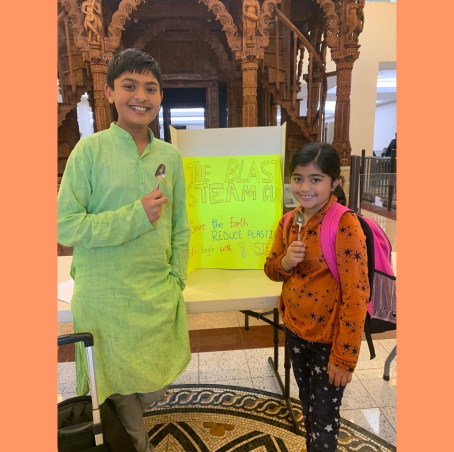 THE BLAST
STEAM
Save the Earth
REDUCE PLASTIC
begin with